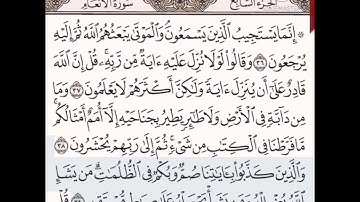 الجزء السابع سورة الأنعام
۞ إِنَّمَا يَسْتَجِيبُ ٱلَّذِينَ يَسْمَعُونَۘ وَٱلْمَوْتَىٰ يَبْعَثُهُمُ ٱللَّهُ ثُمَّ إِلَيْهِ
يُرْجَعُونَ ٣٦ وَقَالُوا۟ لَوْلَا نُزِّلَ عَلَيْهِ ءَايَةٌ مِّن رَّبِّهِۦۚ قُلْ إِنَّ ٱللَّهَ
قَادِرٌ عَلَىٰٓ أَن يُنَزِّلَ ءَايَةً وَلَٰكِنَّ أَكْثَرَهُمْ لَا يَعْلَمُونَ ٣٧ وَمَا
مِن دَآبَّةٍ فِى ٱلْأَرْضِ وَلَا طَٰٓئِرٍ يَطِيرُ بِجَنَاحَيْهِ إِلَّآ أُمَمٌ أَمْثَالُكُمۚ
مَّا فَرَّطْنَا فِى ٱلْكِتَٰبِ مِن شَىْءٍۚ ثُمَّ إِلَىٰ رَبِّهِمْ يُحْشَرُونَ ٣٨
وَٱلَّذِينَ كَذَّبُوا۟ بِـَٔايَٰتِنَا صُمٌّ وَبُكْمٌ فِى ٱلظُّلُمَٰتِۗ مَن يَشَإِ